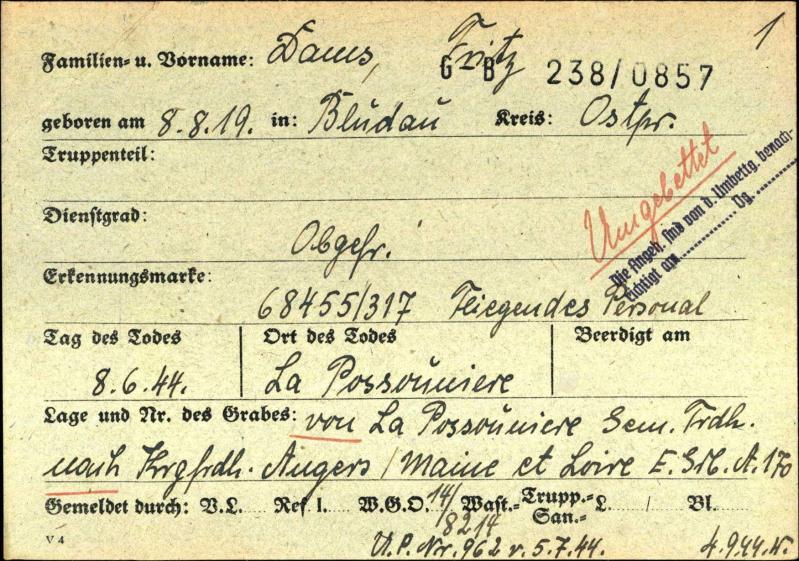 1
Familien- u. Vorname: Daus, Fritz
G - B 238/0857
geboren am 8.8.19. in: Blúdaú Kreis: Ostpr.
Truppenteil:
Umgebettet
Die Angeh. sind von d. Umbettg. benach-
richtigt am ............ Dg. ............
Dienstgrad:
Obgefr.
Erkennungsmarke:
68455/317 Fliegendes Personal
Tag des Todes Ort des Todes Beerdigt am
8.6.44. La Possoúniere
Lage und Nr. des Grabes: von La Possoúniere Gem. Frdh.
nach Krgfrdh. Angers / Maine et Loire E. Grb. A. 170
Gemeldet durch: V.L. Ref I. W.G.O. 14/8214 Wast.- Trupp.- San.- L. / Bl.
V 4
U.P. Nr. 962 v. 5.7.44. 4.9.44.